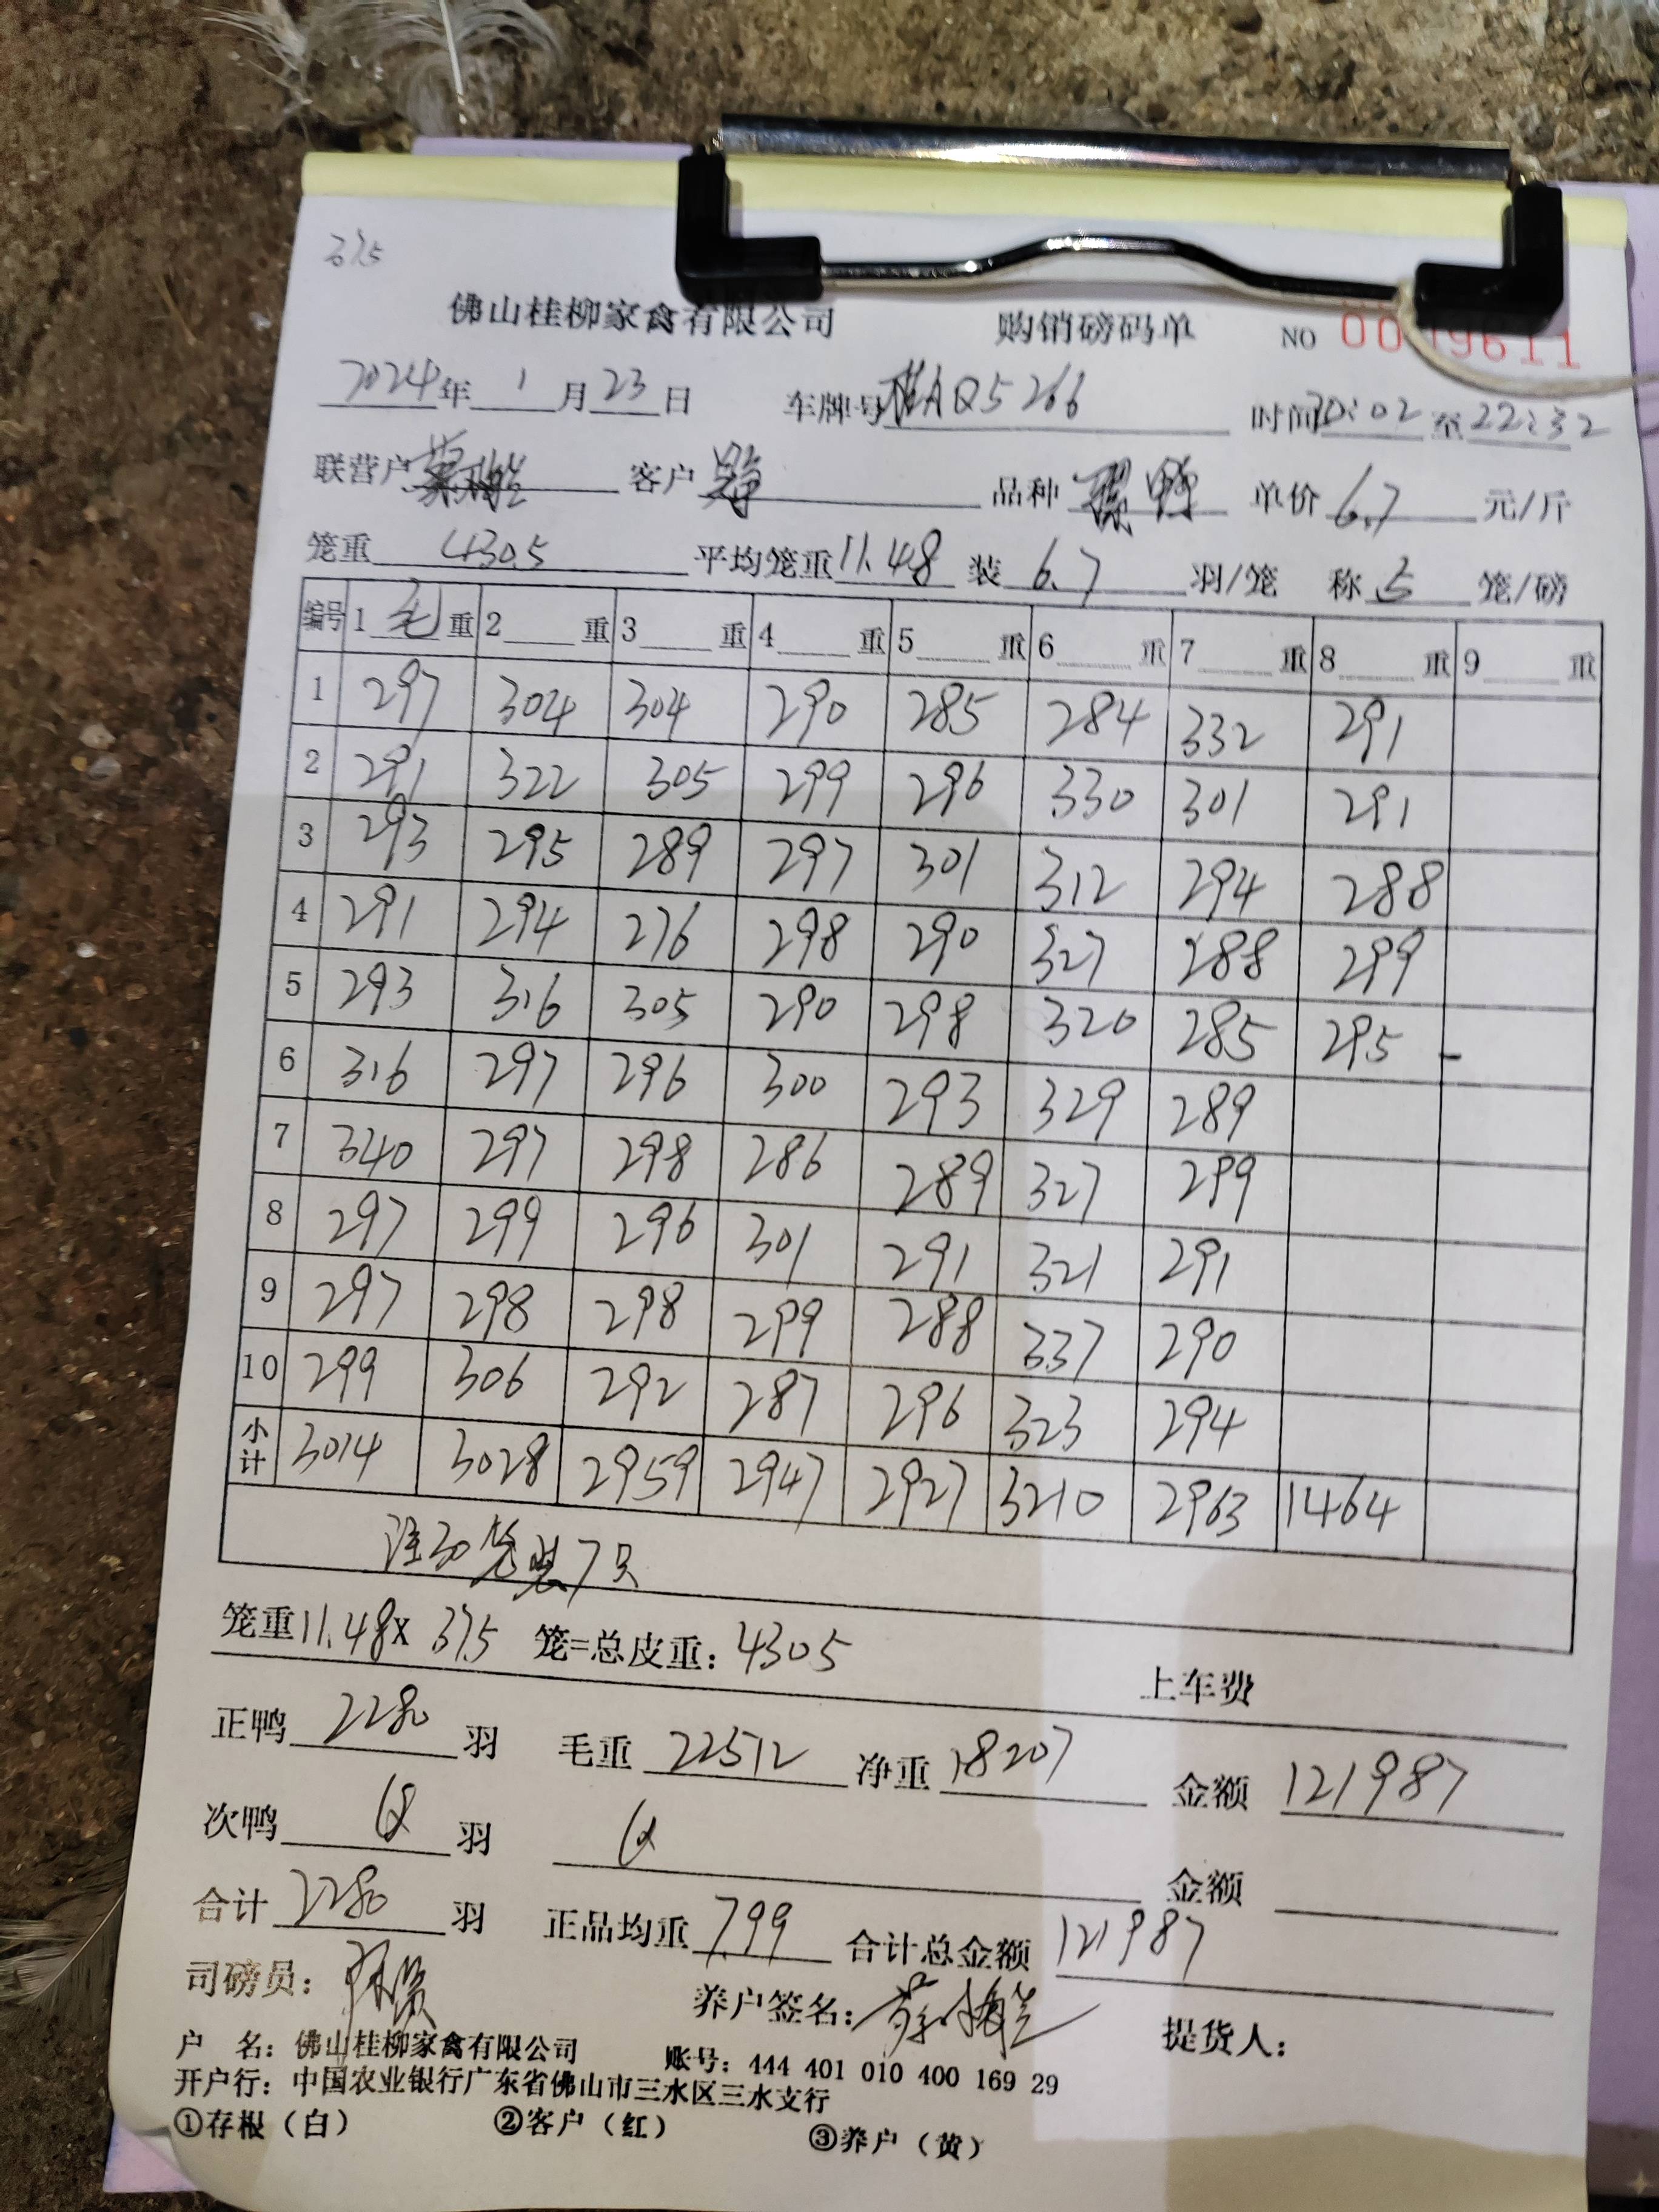 375
佛山桂柳家禽有限公司 购销磅码单 NO 00 9611
2024年 1 月 23 日 车牌号 桂A Q5266 时间 20:02 至 22:32
联营户 客户 品种 鸭 单价 6.7 元/斤
笼重 4305 平均笼重 11.48 装 6.7 羽/笼 称 5 笼/磅
编号 1 毛 重 2 重 3 重 4 重 5 重 6 重 7 重 8 重 9 重
1 297 304 304 290 285 284 332 291
2 291 322 305 299 296 330 301 291
3 293 295 289 297 301 312 294 288
4 291 294 276 298 290 327 288 299
5 293 316 305 290 298 320 285 295 -
6 316 297 296 300 293 329 289
7 340 297 298 286 289 327 299
8 297 299 296 301 291 321 291
9 297 298 298 299 288 337 290
10 299 306 292 287 296 323 294
小计 3014 3028 2959 2947 2927 3210 2963 1464
注30笼装7只
笼重 11.48 x 375 笼=总皮重: 4305
上车费
正鸭 2280 羽 毛重 22512 净重 18207 金额 121987
次鸭 羽 金额
合计 2280 羽 正品均重 7.99 合计总金额 121987
司磅员: 养户签名: 提货人:
户 名: 佛山桂柳家禽有限公司 账号: 444 401 010 400 169 29
开户行: 中国农业银行广东省佛山市三水区三水支行
①存根（白） ②客户（红） ③养户（黄）